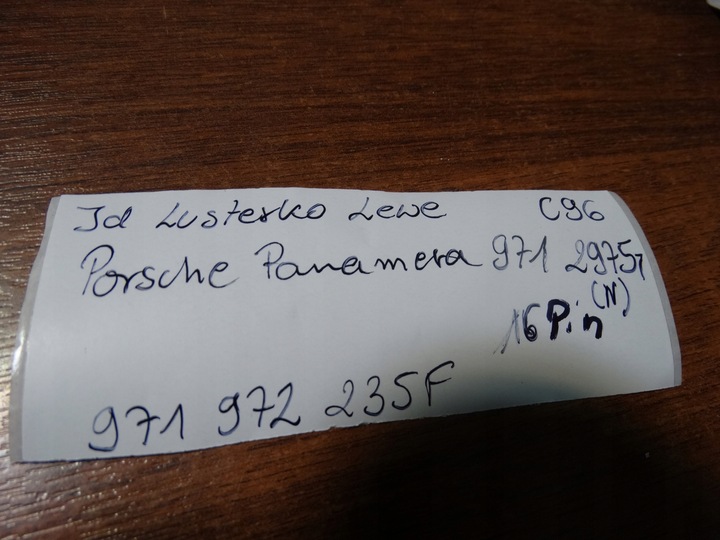 Id Lusterko Lewe C96
Porsche Panamera 971 2975,
(N)
16 Pin
971 972 235F